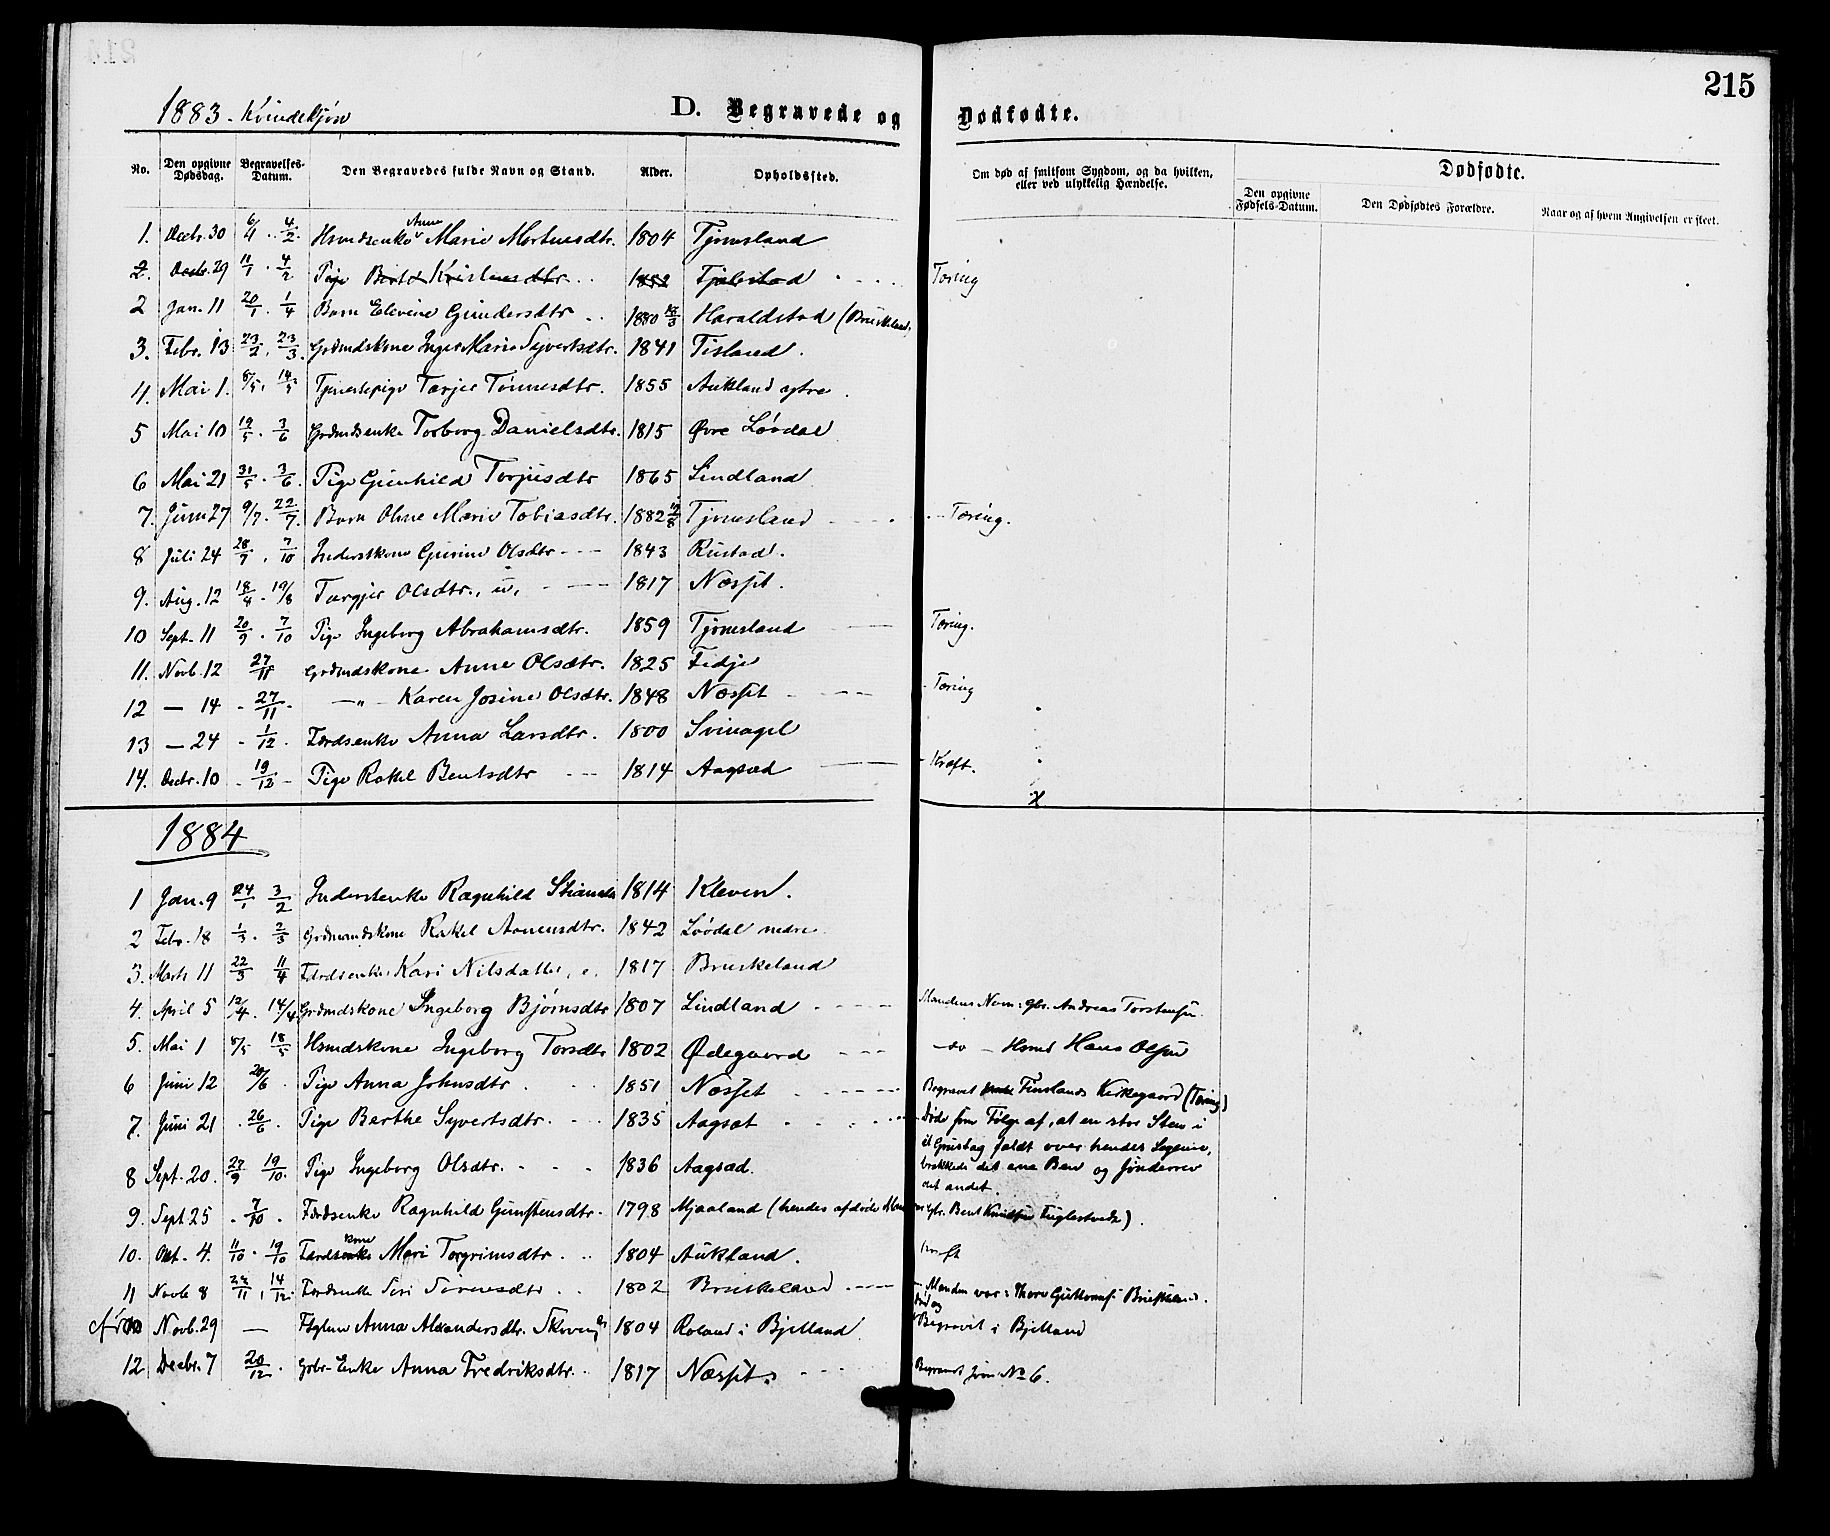 215
1883. Kvindekjøn D. Begravede og Dødfødte.
No. Den opgivne Dødsdag. Begravelses-Datum. Den Begravedes fulde Navn og Stand. Alder. Opholdssted. Om død af smitsom Sygdom, og da hvilken, eller ved ulykkelig Hændelse. Dødfødte.
Den opgivne Fødsels-Datum. Den Dødfødtes Forældre. Naar og af hvem Angivelsen er skeet.
1. Decbr. 30 6/4 . 4/2. Hsmdsenke Anne Marie Mortensdtr. 1804 Tjomsland
2. Decbr. 29 11/1 . 4/2 Pige Berte Kristensdtr. 1852 Tjelestad Tæring
2 Jan. 11 20/1 . 1/4 Barn Elevine Gundersdtr 1880 Haraldstad (Bruskeland)
3. Febr. 13 23/2 . 23/3 Grdmdskone Inger Marie Syvertsdtr. 1841 Tisland.
4. Mai 1. 8/5. 14/5 Tjenestepige Tarjer Tønnesdtr. 1855 Aukland ytre.
5 Mai 10 19/5 . 3/6 Grdmdsenke Torborg Danielsdtr. 1815 Øvre Løvdal
6 Mai 21 31/5 . 3/6. Pige Gunhild Torjusdtr 1865 Lindland
7. Juni 27 9/7. 22/7. Barn Oline Marie Tobiasdtr. 1882 Tjomsland Tæring.
8 Juli 24 28/7 . 7/10 Inderstkone Gurine Olsdtr 1843 Rustad.
9. Aug. 12 18/8 . 19/8 Targjer Olsdtr., u, 1817 Næsset.
10 Sept. 11 20/9 . 7/10 Pige Ingeborg Abrahamsdtr. 1859 Tjomsland Tæring.
11. Novb. 12 27/11 Grdmdskone Anne Olsdtr. 1825 Fidje
12 — 14 27/11. —"— Karen Josine Olsdtr. 1848 Næsset Tæring
13 — 24 1/12. Fdrdsenke Anna Larsdtr. 1800 Svinagel
14. Decbr. 10 19/12 Pige Rakel Bentsdtr 1814 Aagsad Kræft.
1884
1 Jan. 9 24/1 3/2 Inderstenke Ragnhild 1814 Kleven.
2 Febr. 18 1/3. 2/3 Grdmandskone Rakel Aanensdtr. 1842 Løvdal nedre
3. Marts 11 22/3 11/4 Fdrdsenke Kari Nilsdatter, e. 1817 Bruskeland
4. April 5 12/4. 14/4 Grdmdskone Ingeborg Bjørnsdtr 1807 Lindland Mandens Navn: gbr. Andreas Torstensen.
5. Mai 1 8/5 18/5 Hsmdskone Ingeborg Torsdtr 1802 Ødegaard — do — Hsmd Hans Olsen
6 Juni 12 20/6. Pige Anna Johnsdtr 1851 Næsset Begravet Finslands Kirkegaard (Tæring)
7. Juni 21 . 26/6 Pige Berthe Syvertsdtr. 1835 Aagsat Døde som Følge af, at en stor Sten i
et Grustag faldt over hendes Legeme,
8 Sept. 20. 27/9 19/10. Pige Ingeborg Olsdtr. 1836 Aagsad. brækkede det ene Ben og sønderrev
det andet.
9. Sept 25 . 7/10 . Fdrdsenke Ragnhild Gunstensdtr. 1798 Mjaaland (hendes afdøde Man var gbr. Bent Knudsen Fuglestvedt).
10. Okt. 4. 11/10 . 19/10 Fdrdskone Mari Torgrimsdtr 1804 Aukland. Kræft
11 Novb 8 22/11 . 14/12. Fdrdsenke Siri Sørensdtr 1802 Bruskeland Manden var: Thore Guttormsf Bruskeland.
Novb. 29 — Anna Alexandersdtr. 1804 Roland i Bjelland. Død og Begravet i Bjelland
12 Decbr. 7 20/12. Grbr.-Enke Anna Fredriksdtr. 1817 Næsset. Begravet som No 6.